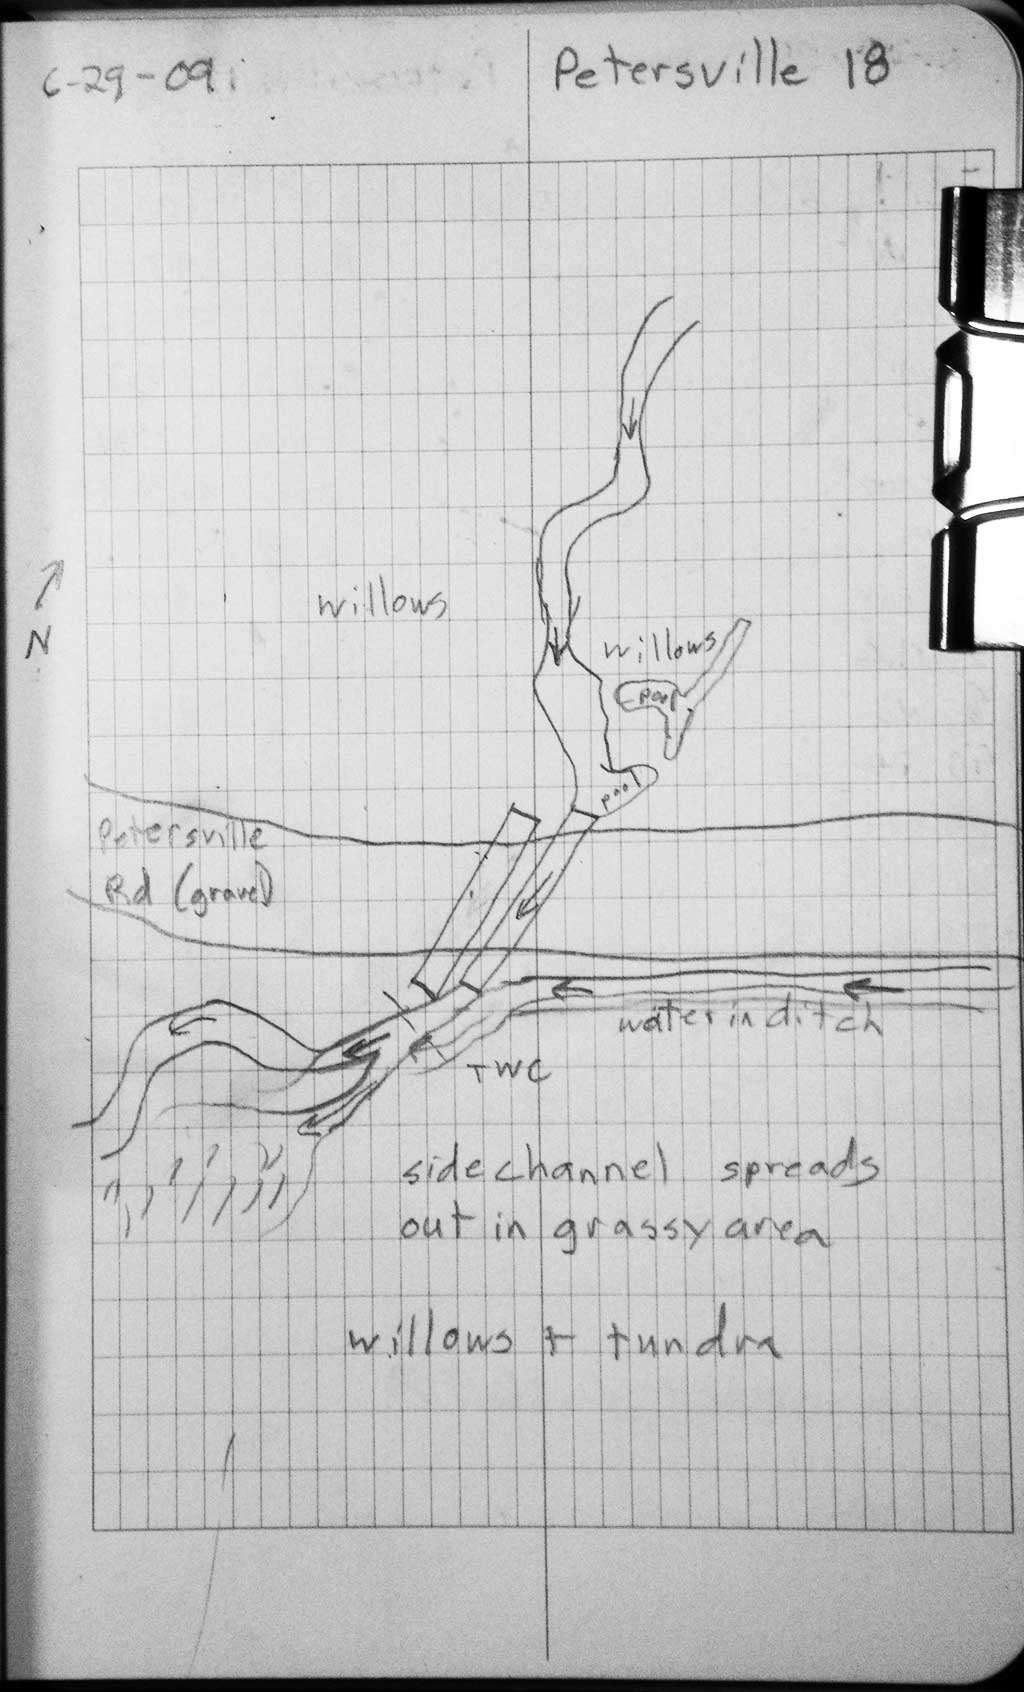 6-29-09
Petersville 18
N
willows
willows
pool
pool
Petersville
Rd (gravel)
water in ditch
TWC
side channel spreads
out in grassy area
willows + tundra